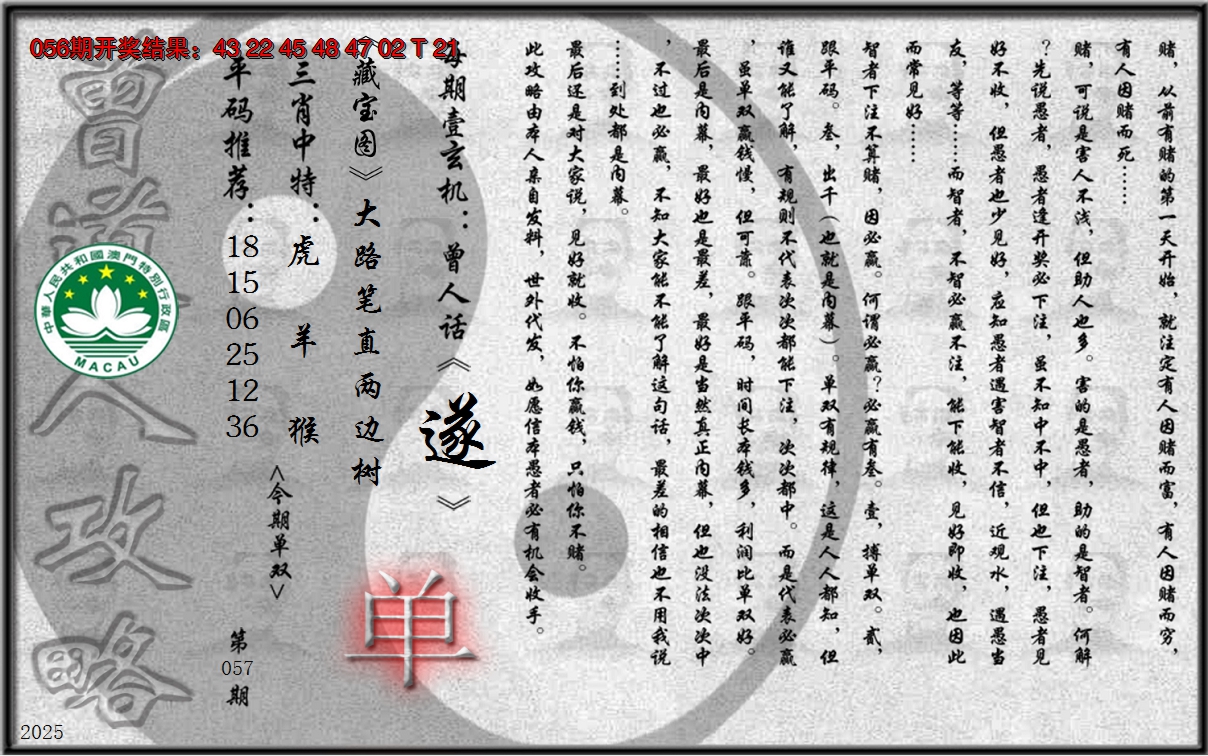 056期开奖结果：43 22 45 48 47 02 T 21
赌，从前有赌的第一天开始，就注定有人因赌而富，有人因赌而穷，
有人因赌而死……
赌，可说是害人不浅，但助人也多。害的是愚者，助的是智者。何解
？先说愚者，愚者逢开奖必下注，虽不知中不中，但也下注，愚者见
好不收，但愚者也少见好，应知愚者遇害智者不信，近观水，遇愚当
友，等等……而智者，不智必赢不注，能下能收，见好即收，也因此
而常见好……
智者下注不算赌，因必赢。何谓必赢？必赢有叁。壹，搏单双。贰，
跟平码。叁，出千（也就是内幕）。单双有规律，这是人人都知，但
谁又能了解，有规则不代表次次都能下注，次次都中。而是代表必赢
，虽单双赢钱慢，但可靠。跟平码，时间长本钱多，利润比单双好。
最后是内幕，最好也是最差，最好是当然真正内幕，但也没法次次中
，不过也必赢，不知大家能不能了解这句话，最差的相信也不用我说
……到处都是内幕。
最后还是对大家说，见好就收。不怕你赢钱，只怕你不赌。
此攻略由本人亲自发料，世外代发，如愿信本愚者必有机会收手。
每期壹玄机：曾人话《遂》
《藏宝图》大路笔直两边树
单
三肖中特：虎 羊 猴
<今期单双>
平码推荐：18 15 06 25 12 36
第057期
曾道人攻略
中華人民共和國澳門特別行政區
MACAU
2025